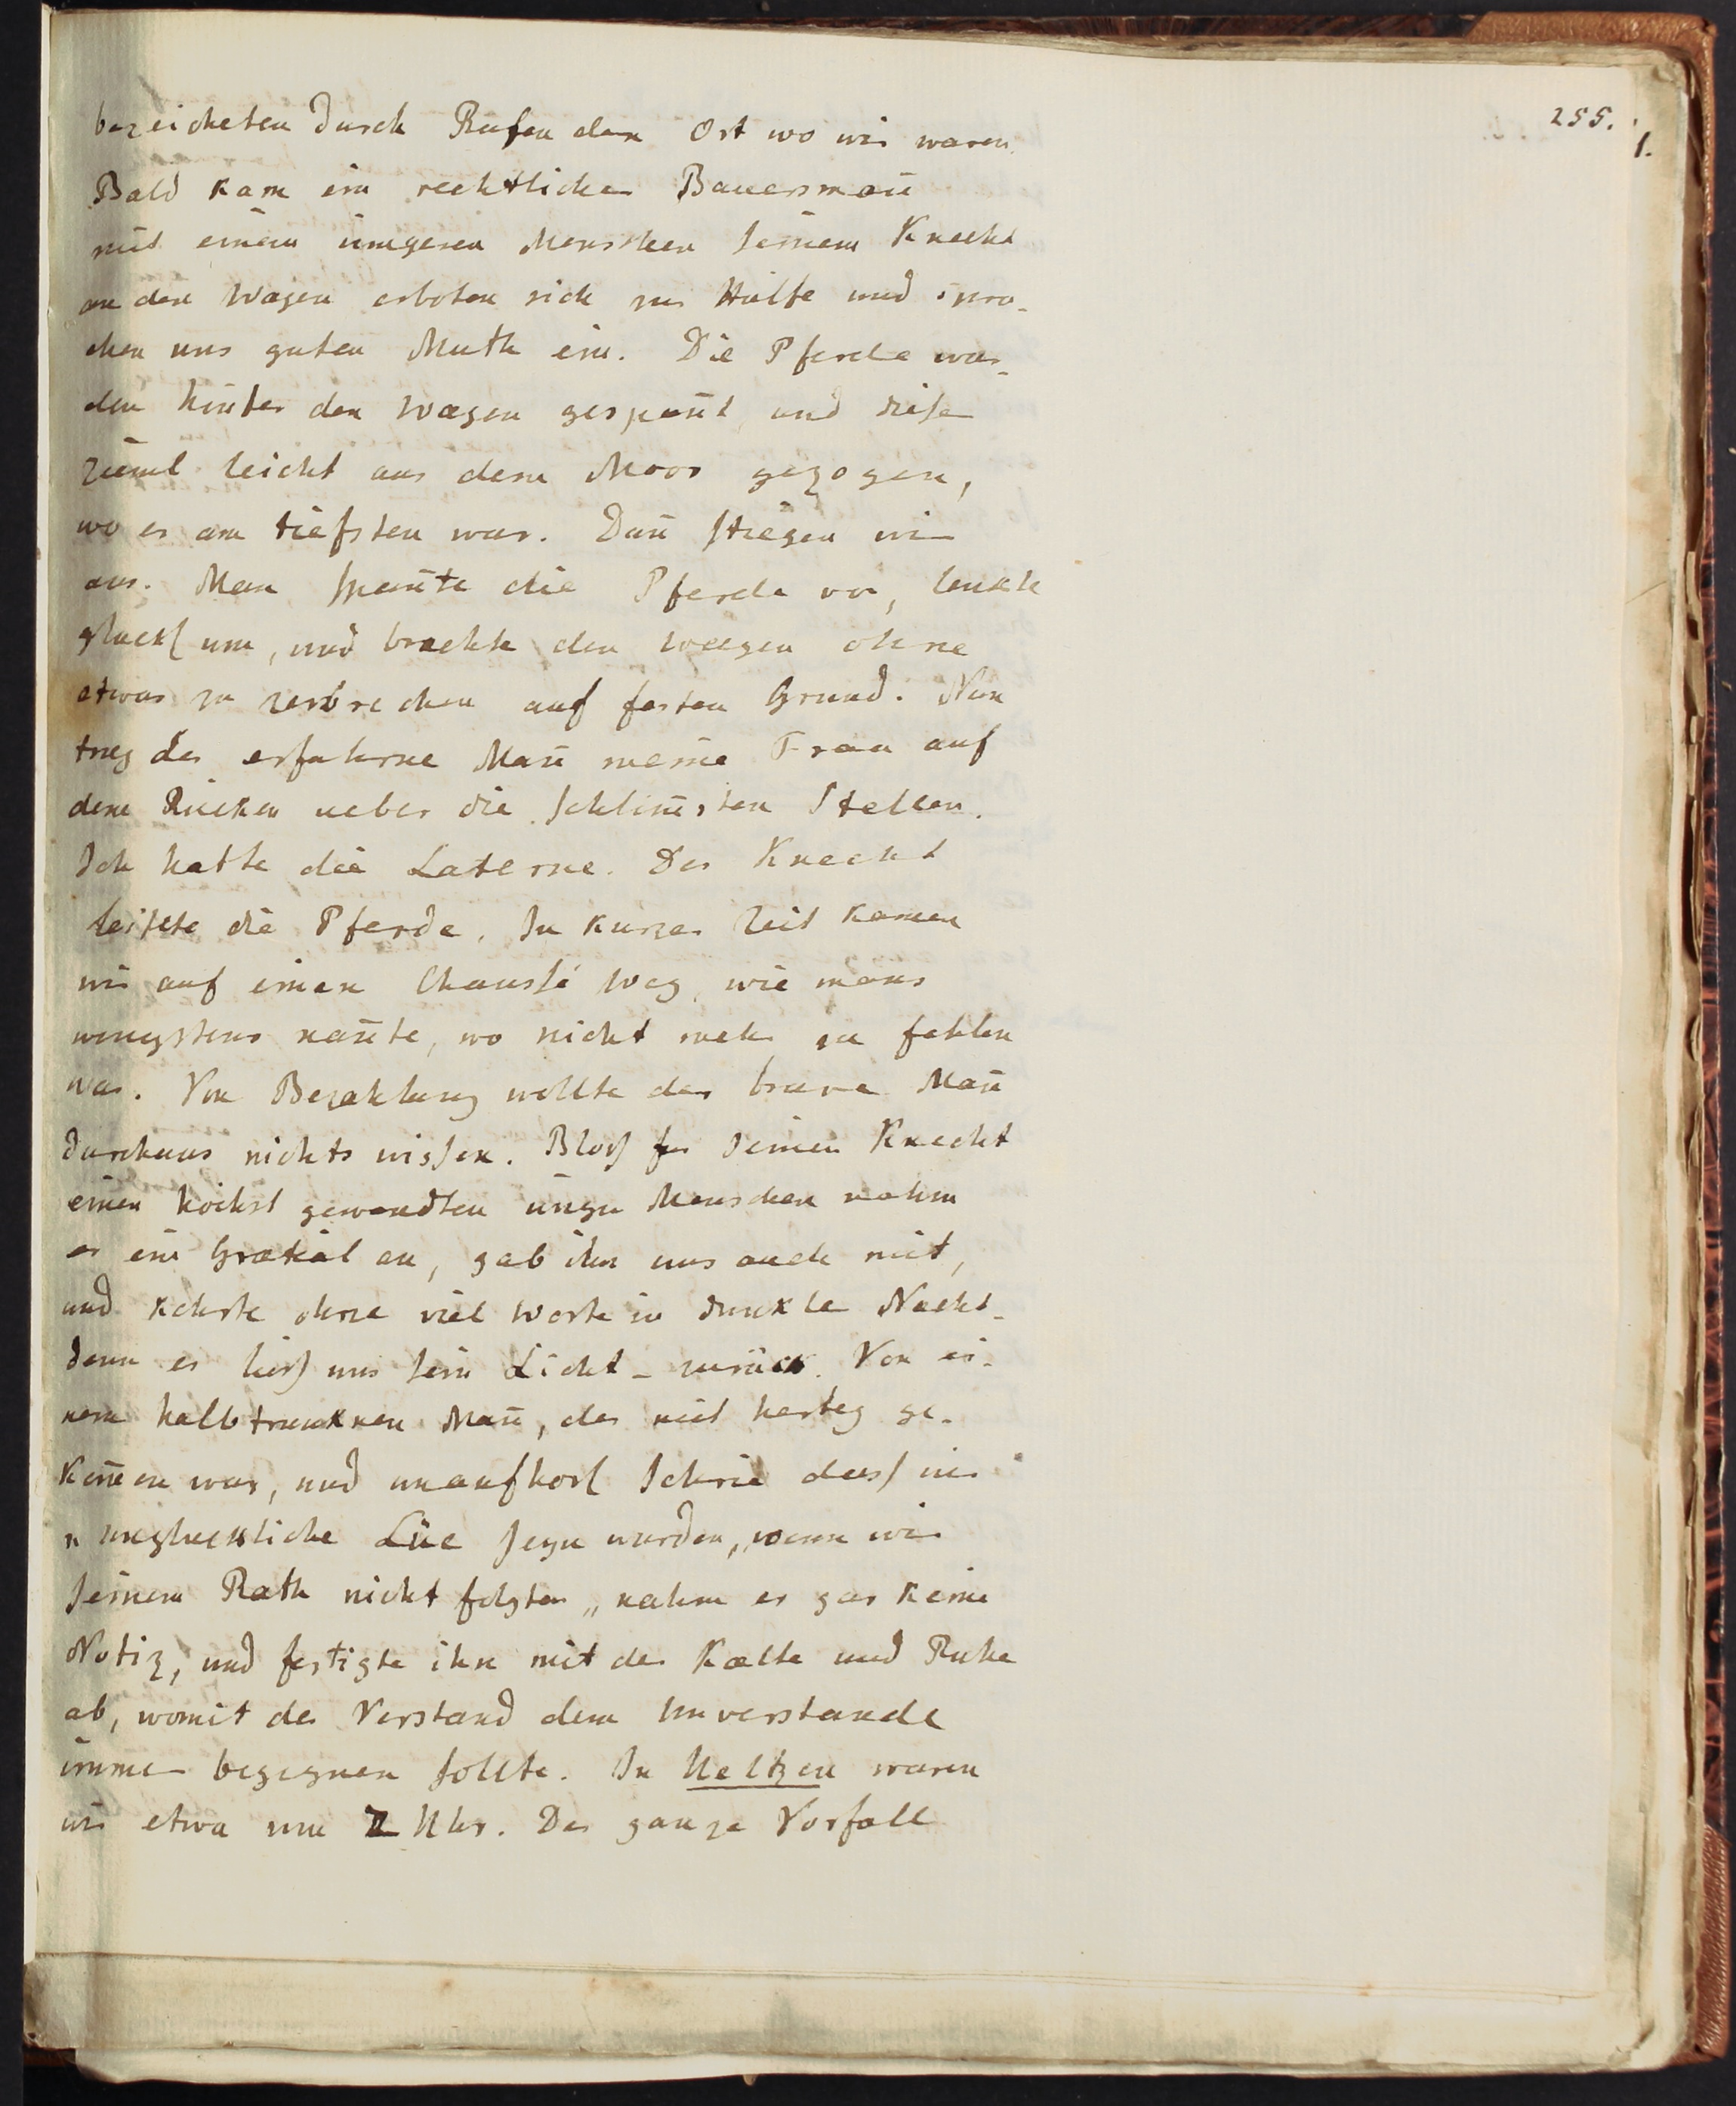 255.
1.
bezeicheten durch Rufen den Ort wo wir waren.
Bald kam ein rechtlicher Bauersmañ
mit einem iungeren Menschen seinem Knecht
an den Wagen erboten sich zur Hülfe und spra-
chen uns guten Muth ein. Die Pferde wur-
den hinter den Wagen gespañt, und dieser
zieml leicht aus dem Moor gezogen,
wo es am tiefsten war. Dañ stiegen wir
aus. Man spañte die Pferde vor, lenkte
glückl um, und brachte den Wagen ohne
etwas zu zerbrechen auf festen Grund. Nun
trug der erfahrne Mañ meine Frau auf
dem Rücken ueber die schlim̃sten Stellen.
Ich hatte die Laterne. Der Knecht
leitete die Pferde. In kurzer Zeit kamen
wir auf einen Chaussé Weg, wie mans
wenigstens nañte, wo nicht mehr zu fehlen
war. Von Bezahlung wollte der brave Mañ
durchaus nichts wissen. Blos für seinen Knecht
einen höchst gewandten iungen Menschen nahm
er ein Gratial an, gab ihn uns auch mit,
und kehrte ohne viel Worte in dunkle Nacht-
denn er liess uns sein Licht - zurück. Von ei-
nem halbtrunknen Mañ, der mit herbey ge-
kom̃en war, und unaufhörl schrie dass wir
„ unglückliche Lüe seyn würden, wenn wir
seinem Rath nicht folgten „ nahm er gar keine
Notiz, und fertigte ihn mit der Kälte und Ruhe
ab, womit der Verstand dem Unverstande
immer begegnen sollte. In Ueltzen waren
wir etwa um 2 Uhr. Der ganze Vorfall